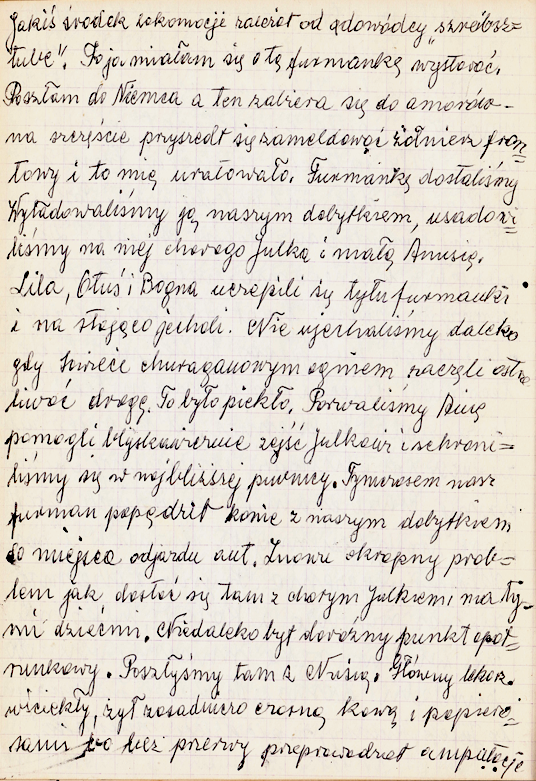 Jakiś środek lokomocji zależał od dowódcy "szrejbsz=
tube". To ja miałam się o tę furmankę wystarać.
Poszłam do Niemca a ten zabiera się do amorów -
na szczęście przyszedł się zameldować żołnierz fron=
towy i to mię uratowało. Furmankę dostaliśmy
Wyładowaliśmy ją naszym dobytkiem, usadowi=
liśmy na niej chorego Julka i małą Anusię.
Lila, Otuś i Bogna uczepili się tyłu furmanki
i na stojąco jechali. Nie ujechaliśmy daleko
gdy huraganowym ogniem zaczęli ostrze
liwać drogę. To było piekło. Porwaliśmy
pomogli błyskawicznie zejść Julkowi i schroni=
liśmy się w najbliższej piwnicy. Tymczasem nasz
furman popędził konie z naszym dobytkiem
do miejsca odjazdu aut. Znowu okropny prob=
lem jak dostać się tam z chorym Julkiem i ma ły-
mi dziećmi. Niedaleko był doraźny punkt opat=
runkowy. Poszłyśmy tam z Nusią. Główny lekarz
wściekły, żył zasadniczo czarną kawą i papiero=
sami bo bez przerwy przeprowadzał amputacje